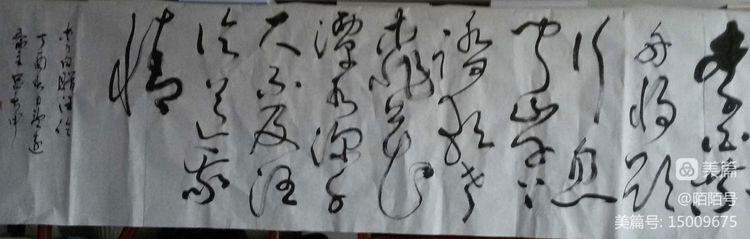 李白乘
舟将欲
行忽
闻岸上
踏歌声
桃花
潭水深千
尺不及汪
伦送我
情
丁酉
美篇
@陌陌号
美篇号: 15009675